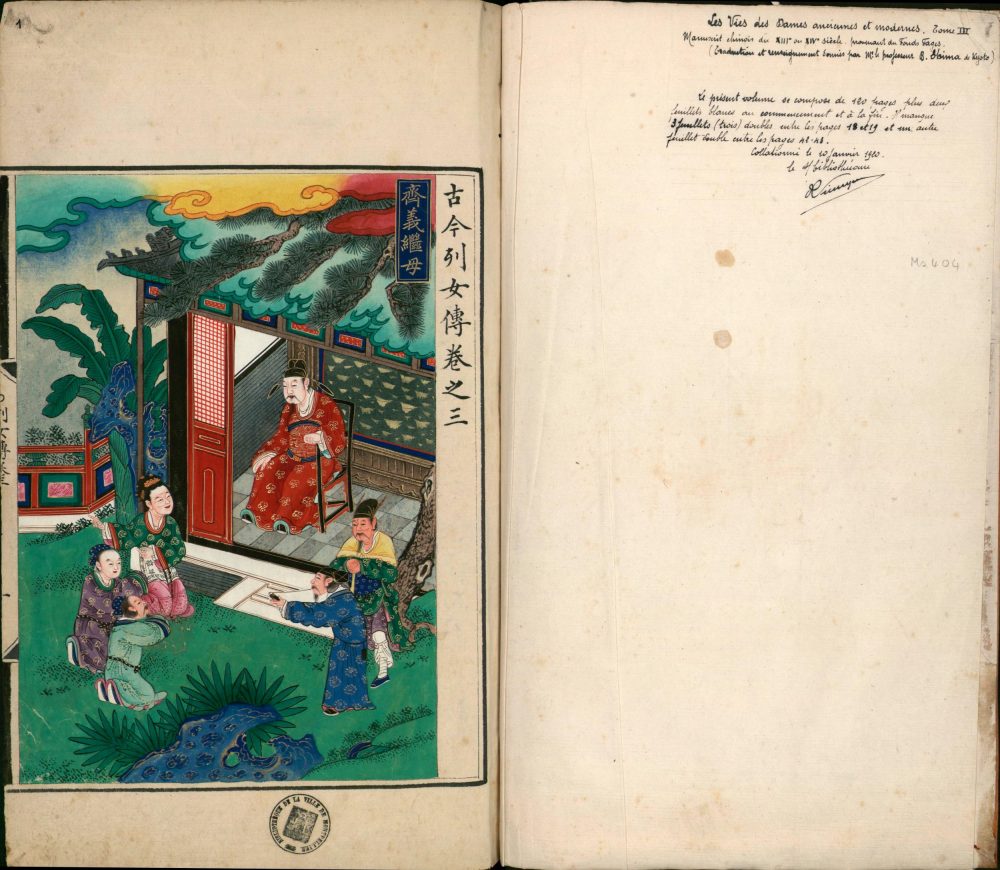 1
齊義繼母
古今列女傳卷之三
BIBLIOTHEQUE DE LA VILLE DE MONTPELLIER
Les Vies des Dames anciennes et modernes. Tome III
Manuscrit chinois du XIIIe ou XIVe siècle. provenant du Fonds Fages.
(Traduction et renseignement donnés par Mr le professeur
de Kyoto)
Le présent volume se compose de 120 pages plus deux
feuillets blancs au commencement et à la fin. Il manque
3 feuillets (trois) doubles entre les pages 18 et 19 et un autre
feuillet double entre les pages
Collationné le 10 janvier 1920.
le s/bibliothécaire
Ms 404